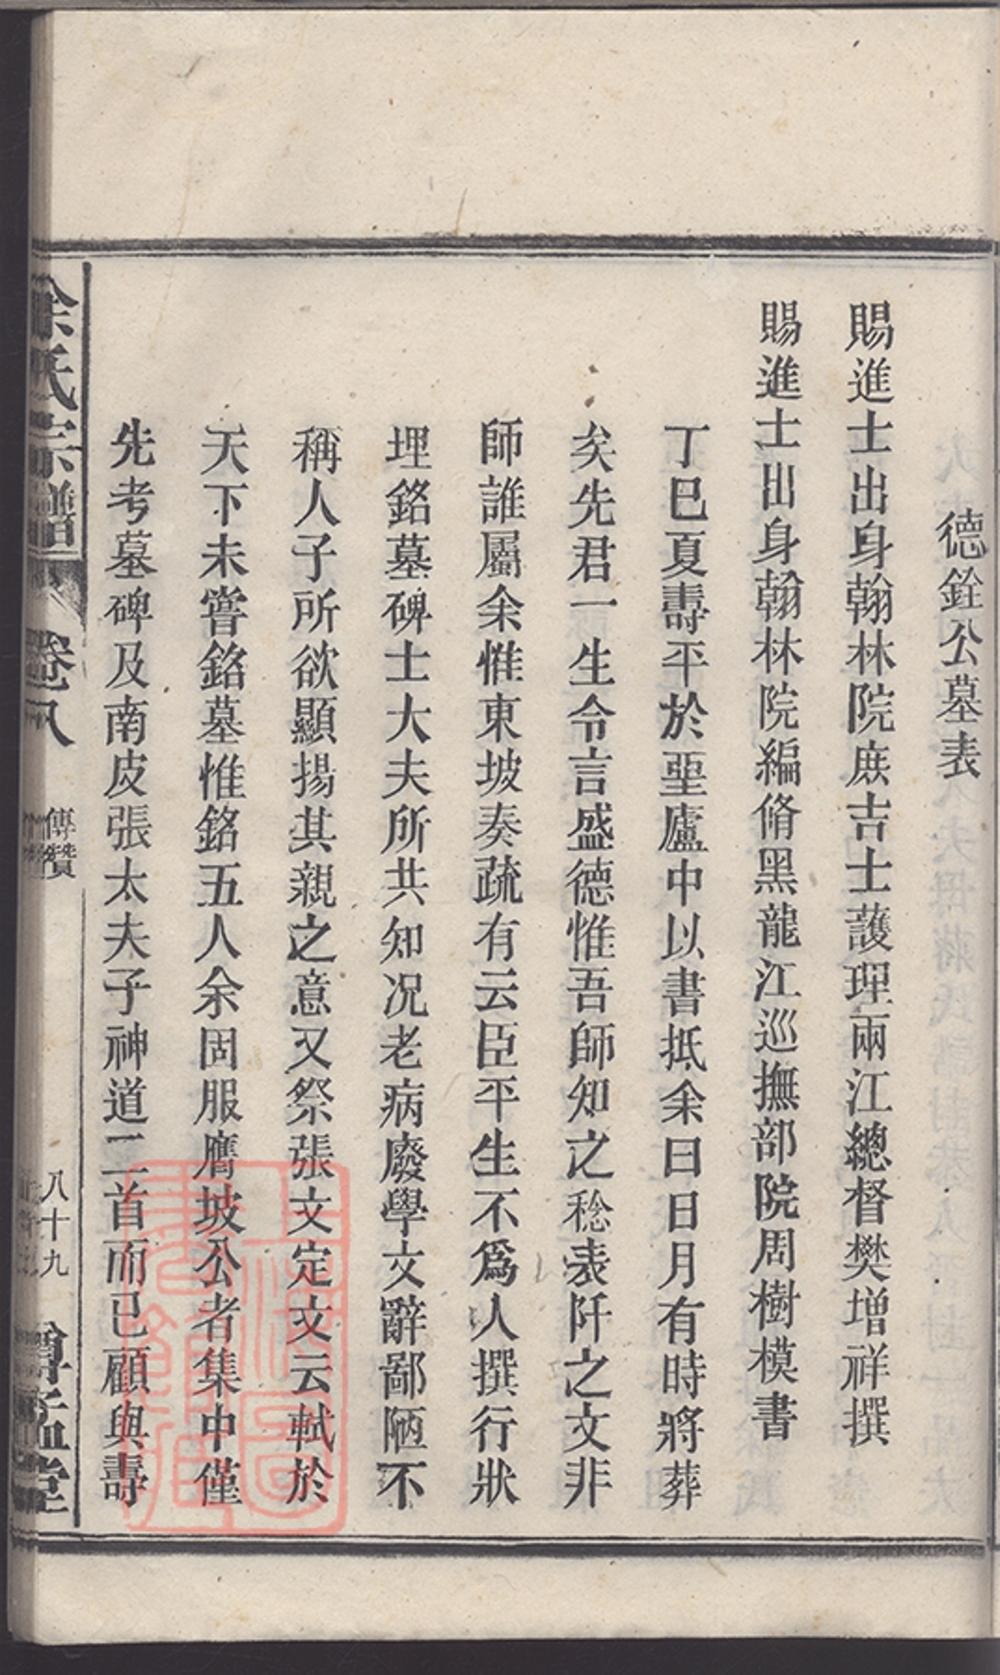 德銓公墓表
賜進士出身翰林院庶吉士護理兩江總督樊增祥撰
賜進士出身翰林院編脩黑龍江巡撫部院周樹模書
丁巳夏壽平於堊廬中以書抵余曰日月有時將葬
矣先君一生令言盛德惟吾師知之稔表阡之文非
師誰屬余惟東坡奏疏有云臣平生不爲人撰行狀
埋銘墓碑士大夫所共知况老病廢學文辭鄙陋不
稱人子所欲顯揚其親之意又祭張文定文云軾於
天下未嘗銘墓惟銘五人余固服膺坡公者集中僅
先考墓碑及南皮張太夫子神道二首而已顧與壽
余氏宗譜
卷八
傳贊
八十九